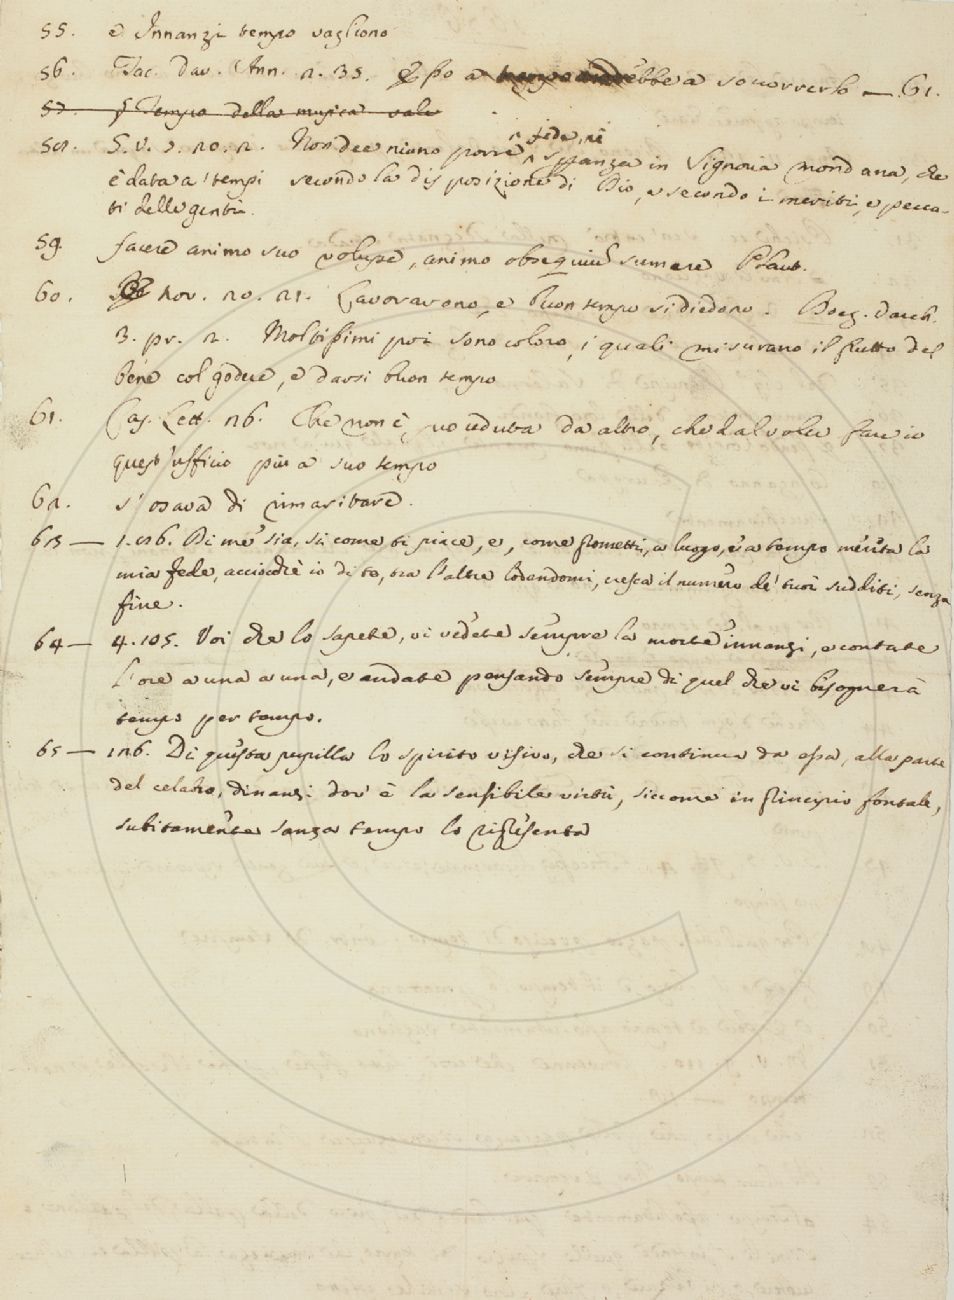 55. e Innanzi tempo vagliono
56. Tac. Dav. Ann. 2. 35. e a socorrerlo — 61.
57. § Tempo della musica vale
58. G. V. 2. Non dee niuno porre nè fede, nè
speranza in Signoria mondana, che
è data a' tempi secondo la disposizione di Dio, e secondo i meriti, e pecca-
ti delle genti.
59 facere animo suo volupe, animo obsequium sumere Plaut.
60. nov. 20. 21. Lavoravano, e buon tempo si diedono. Boez. Varch.
3. pr. 2. Moltissimi poi sono coloro, i quali misurano il frutto del
bene col godere, e darsi buon tempo
61. Cas. Lett. 26. Che non è proceduta da altro, che dal voler fare io
quest'ufficio più a suo tempo
62. s'osava di rimaritare.
63 — 1. Di me sia, sì come ti piace, e, come prometti, a luogo, e a tempo merita la
mia fede, acciocchè io di te, tra l'altre lodandomi, cresca il numero de' tuoi sudditi, senza
fine.
64 — 4. 105. Voi che lo sapete, vi vedete sempre la morte innanzi, e contate
l'ore a una a una, e andate pensando sempre di quel che vi bisognerà
tempo per tempo.
65 — 126. Di questa pupilla lo spirito visivo, che si continua da essa, alla parte
del celabro, dinanzi dov' è la sensibile virtù, siccome in principio fontale,
subitamente sanza tempo lo ripresenta